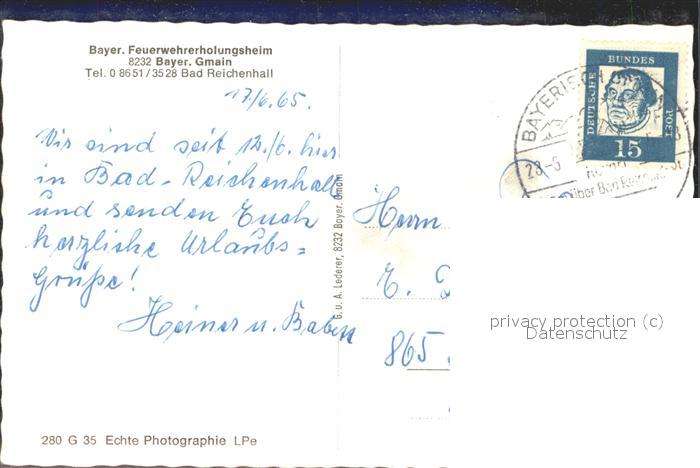 Bayer. Feuerwehrerholungsheim
8232 Bayer. Gmain
Tel. 0 8651/3528 Bad Reichenhall
17/6.65.
Wir sind seit 12./6. hier
in Bad-Reichenhall
und senden Euch
herzliche Urlaubs=
grüße!
Heiner u.
280 G 35 Echte Photographie LPe
G. u. A. Lederer, 8232 Bayer. Gmain
Herrn
E.
865
DEUTSCHE BUNDES POST
15
BAYERISCH GMAIN
über Bad
privacy protection (c)
Datenschutz